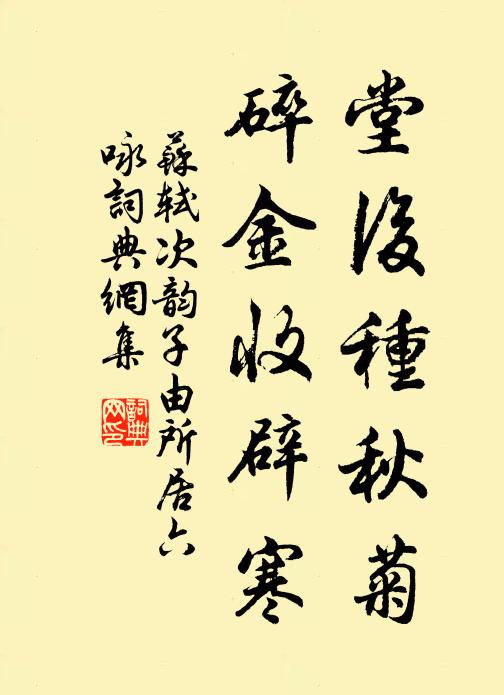 堂後種秋菊
碎金收辟寒
蘇軾次韵子由所居六
咏詞典網集
詞典
网印